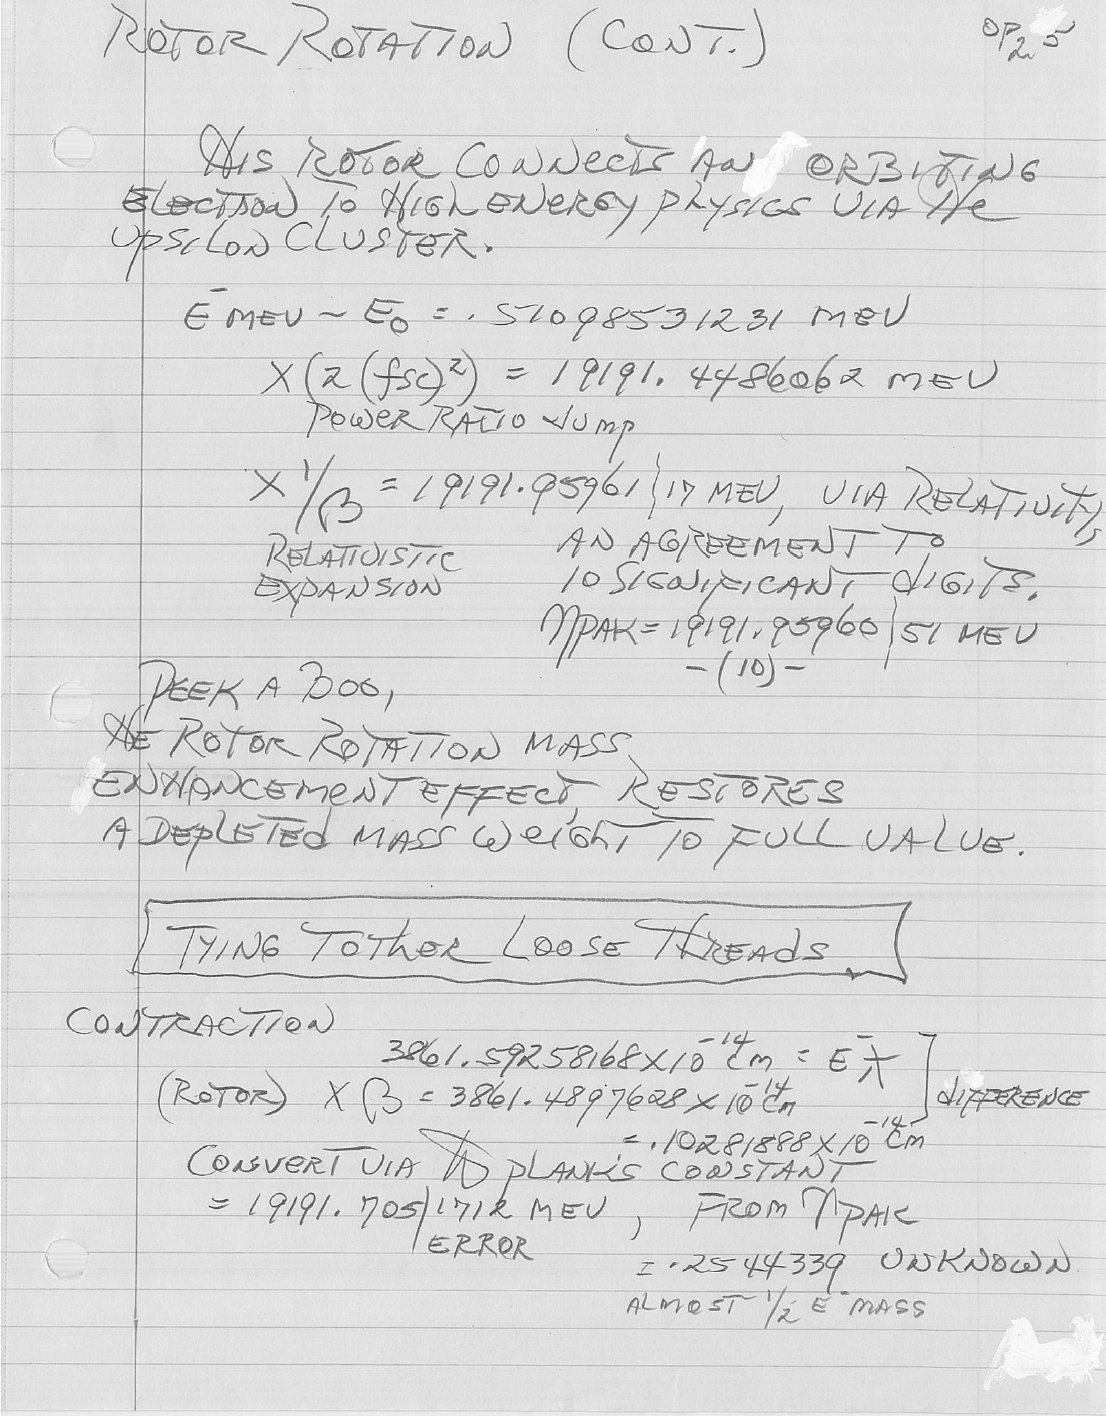 ROTOR ROTATION (CONT.)
OP 2 5
THIS ROTOR CONNECTS AN ORBITING
ELECTRON TO HIGH ENERGY PHYSICS VIA THE
UPSILON CLUSTER.
E⁻ MEV ~ E₀ = .51098531231 MEV
X (2 (fsc)²) = 19191.4486062 MEV
POWER RATIO JUMP
X 1/β = 19191.95961|17 MEV, VIA RELATIVITY,
RELATIVISTIC
EXPANSION
AN AGREEMENT TO
10 SIGNIFICANT DIGITS.
ηPAK = 19191.95960|51 MEV
-(10)-
PEEK A BOO,
THE ROTOR ROTATION MASS
ENHANCEMENT EFFECT, RESTORES
A DEPLETED MASS WEIGHT TO FULL VALUE.
TYING TOTHER LOOSE THREADS
CONTRACTION
3861.59258168 X 10⁻¹⁴ cm = E⁻ƛ
(ROTOR) X β = 3861.4897628 X 10⁻¹⁴ cm
DIFFERENCE
= .10281888 X 10⁻¹⁴ cm
CONVERT VIA ħ PLANK'S CONSTANT
= 19191.705|1712 MEV, FROM ηPAK
ERROR
= .2544339 UNKNOWN
ALMOST 1/2 E⁻ MASS